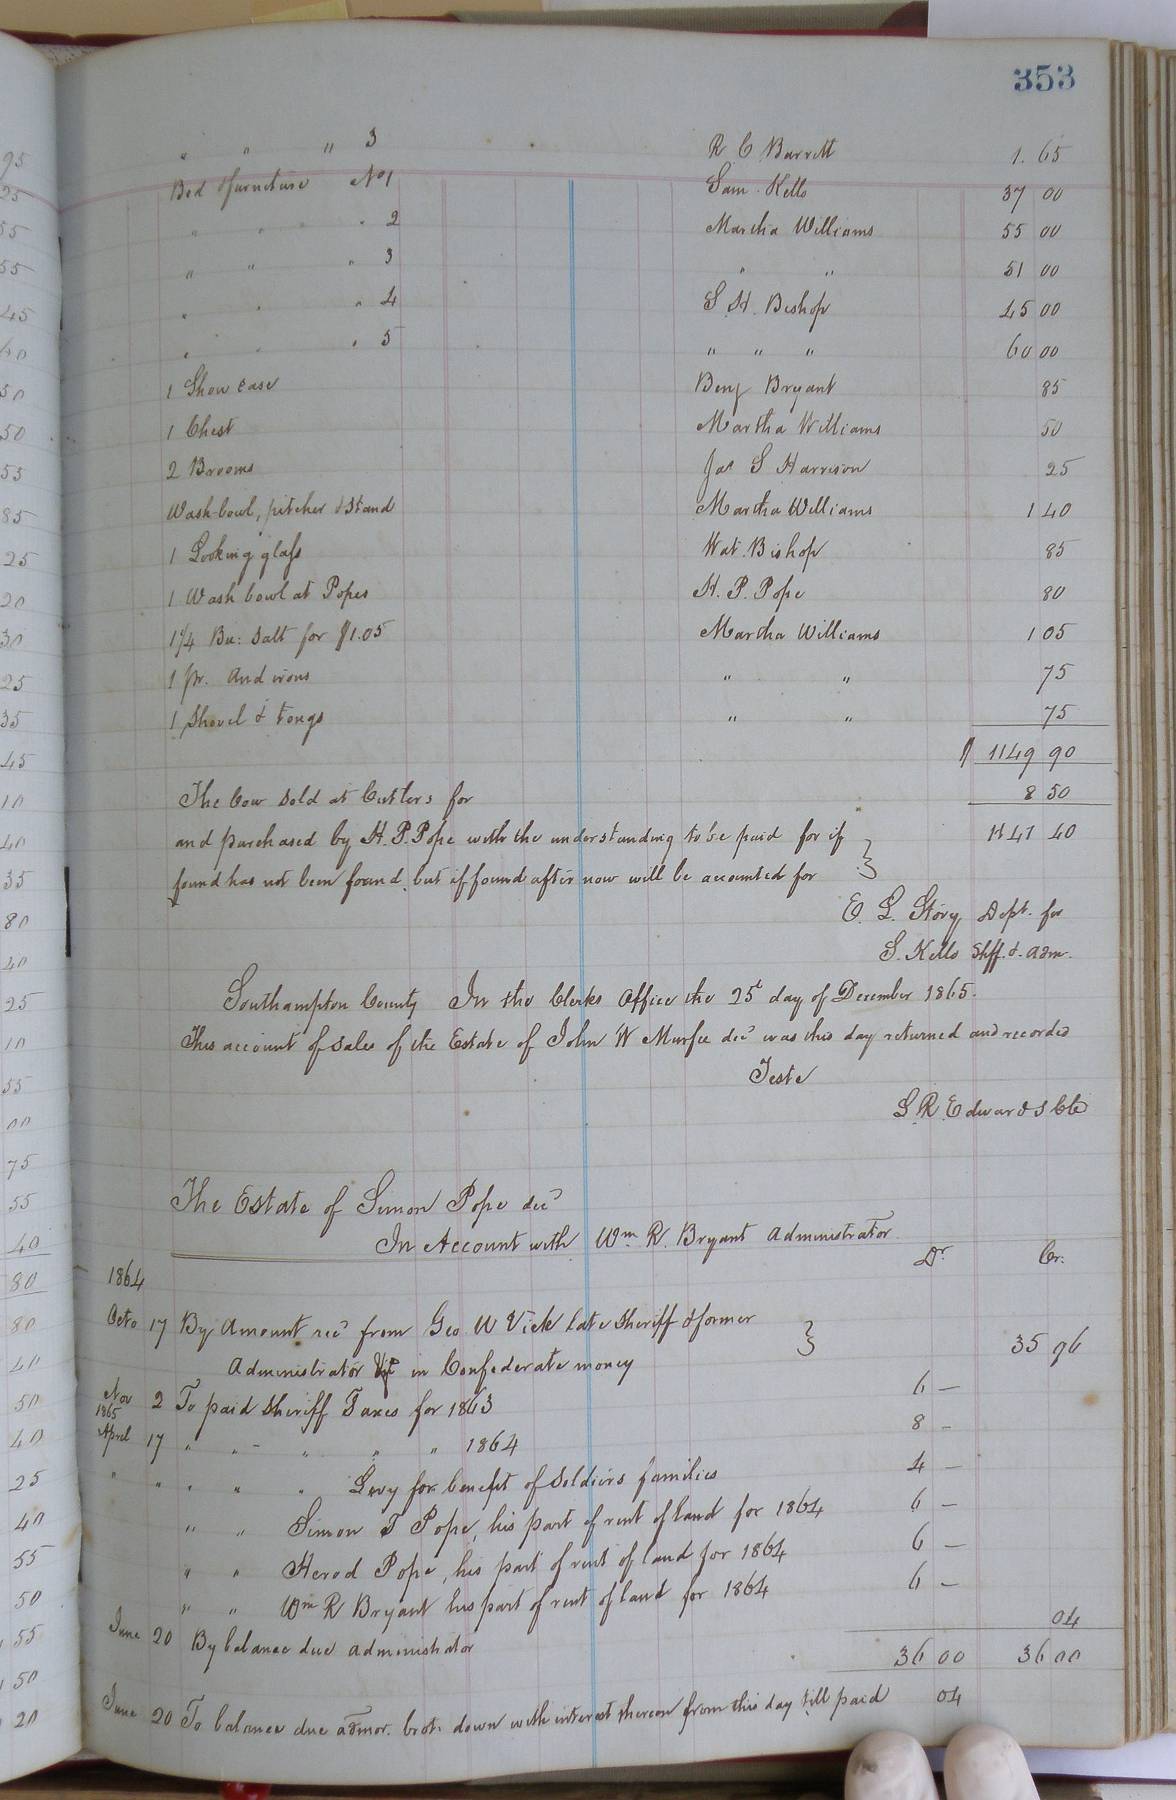 353
" " " 3 R C Barrett 1.65
Bed & furniture No 1 Sam. Kello 37 00
" " " 2 Martha Williams 55 00
" " " 3 " " 51 00
" " " 4 S. H. Bishop 45 00
" " " 5 " " " 60 00
1 Show case Benj Bryant 85
1 Chest Martha Williams 50
2 Brooms Jas S Harrison 25
Wash-bowl, pitcher & Stand Martha Williams 1 40
1 Looking glass Wat. Bishop 85
1 Wash bowl at Popes H. P. Pope 80
1 1/4 Bu: Salt for $1.05 Martha Williams 1 05
1 pr. And irons " " 75
1 Shovel & tongs " " 75
$ 1149 90
The Cow sold at Cutlers for 8 50
and purchased by H. P. Pope with the understanding to be paid for if 1141 40
found has not been found, but if found after now will be accounted for
E. L. Story Dept. for
S. Kello Shff. & adm.
Southampton County In the Clerks Office the 25th day of December 1865.
This account of sales of the Estate of John W Murfee decd was this day returned and recorded
Teste
L. R. Edwards Clk
The Estate of Simon Pope decd
In Account with Wm R. Bryant Administrator
Dr. Cr.
1864
Octo 17 By Amount recd from Geo W Vick late Sheriff & former
Administrator in Confederate money 35 96
Nov 2 To paid Sheriff Taxes for 1863 6 –
1865
April 17 " " " " " 1864 8 –
" " " " " Levy for benefit of Soldiers families 4 –
" " Simon T Pope, his part of rent of land for 1864 6 –
" " Herod Pope, his part of rent of land for 1864 6 –
" " Wm R Bryant his part of rent of land for 1864 6 –
June 20 By balance due administrator 04
36 00 36 00
June 20 To balance due admor. brot. down with interest thereon from this day till paid 04
95
25
55
55
45
60
50
50
55
85
25
20
30
25
35
45
10
40
35
80
40
25
10
55
00
75
55
40
80
80
40
50
40
25
40
55
50
55
50
20